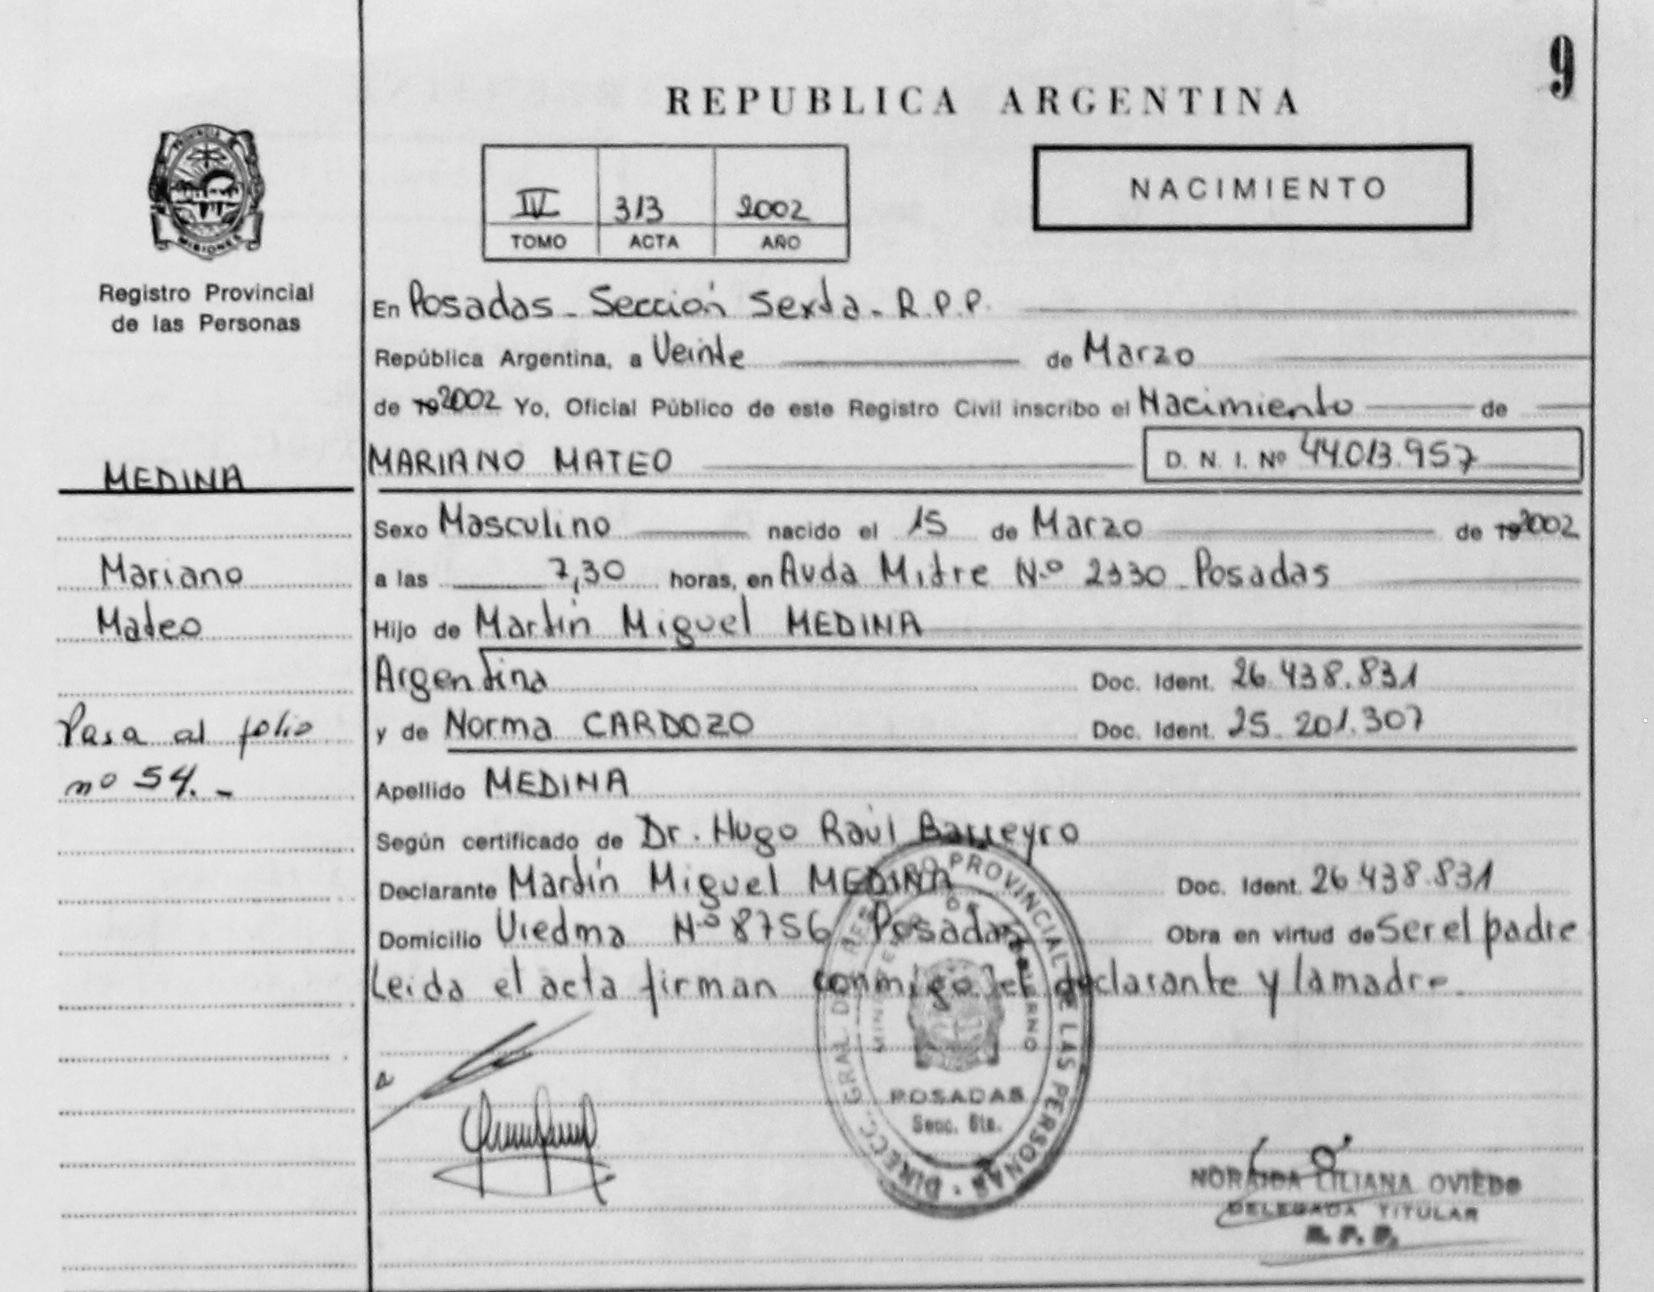 9
REPUBLICA ARGENTINA
PROVINCIA DE
MISIONES
IV 313 2002
TOMO ACTA AÑO
NACIMIENTO
Registro Provincial
de las Personas
En Posadas - Sección Sexta - R.P.P.
República Argentina, a Veinte de Marzo
de 19 2002 Yo, Oficial Público de este Registro Civil inscribo el Nacimiento de
MEDINA
MARIANO MATEO D. N. I. Nº 44.013.957
Sexo Masculino nacido el 15 de Marzo de 19 2002
Mariano
a las 7,30 horas, en Avda Mitre Nº 2330 Posadas
Mateo
Hijo de Martín Miguel MEDINA
Argentina Doc. Ident. 26.438.831
Pasa al folio
y de Norma CARDOZO Doc. Ident. 25.201.307
nº 54.-
Apellido MEDINA
Según certificado de Dr. Hugo Raúl Barreyro
Declarante Martín Miguel MEDINA Doc. Ident. 26.438.831
Domicilio Viedma Nº 8756 Posadas Obra en virtud de Ser el padre
Leída el acta firman conmigo el declarante y la madre.
DIRECC. GRAL. DEL REGISTRO PROVINCIAL DE LAS PERSONAS
MINISTERIO DE GOBIERNO
POSADAS
Secc. 6ta.
NORAIDA LILIANA OVIEDO
DELEGADA TITULAR
R. P. P.